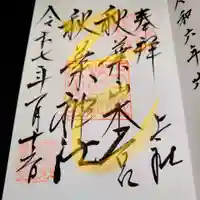 奉拝
上社
秋葉山本宮
秋葉神社
令和七年一月十
令和六年